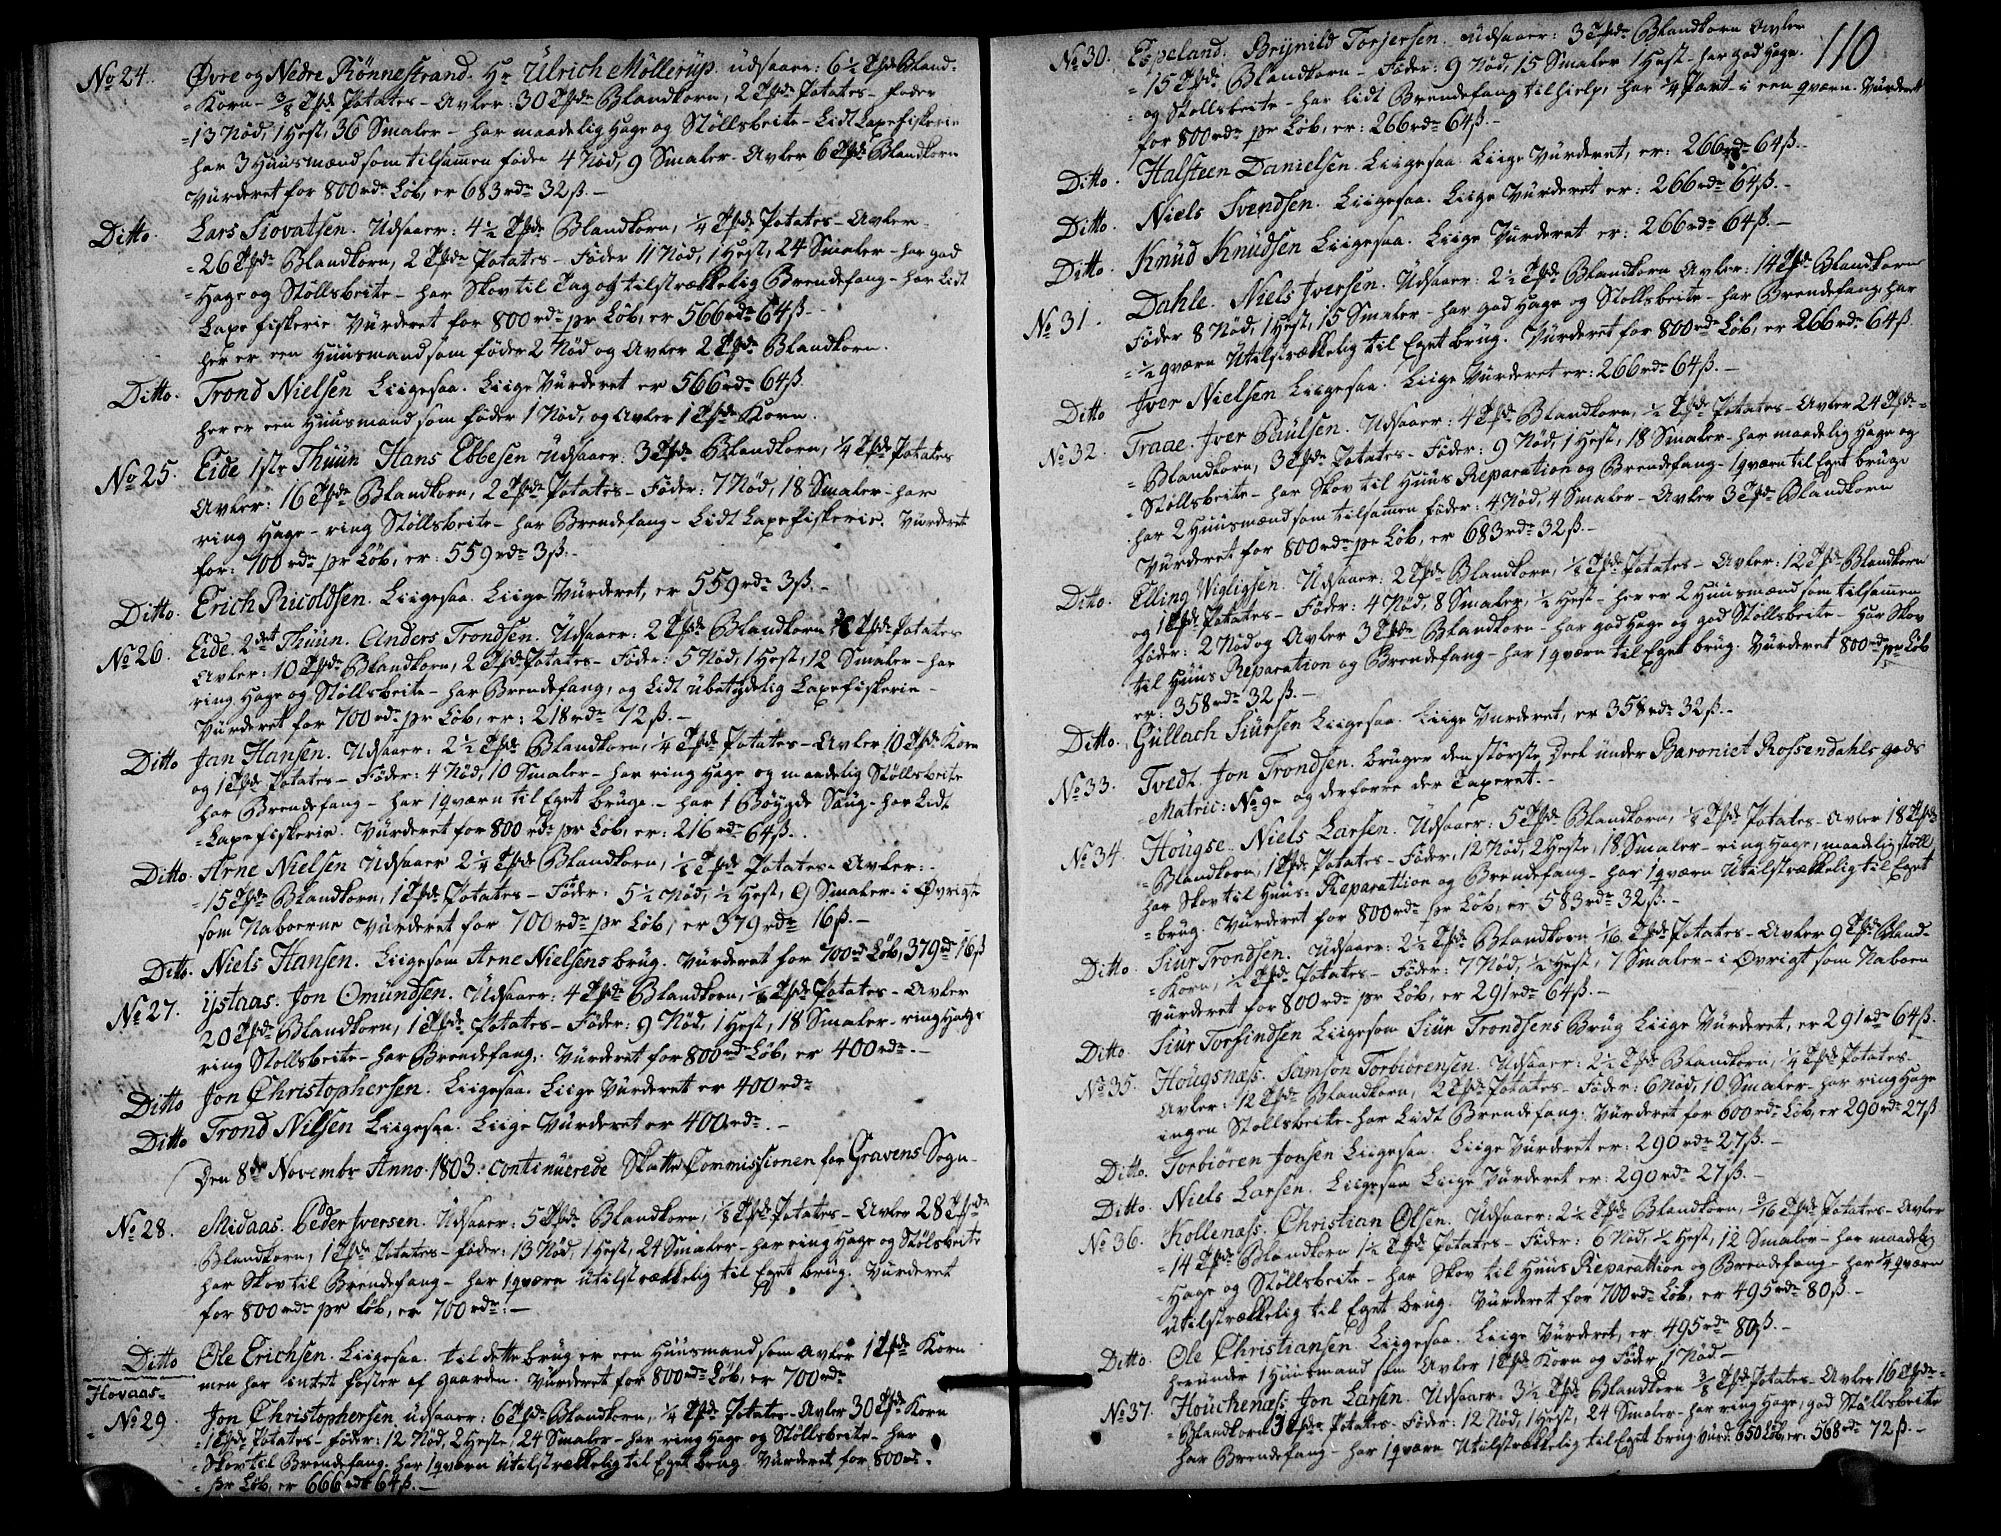 No 24. Øvre og Nedre Rönnestrand. Hr Ulrich Möllerup udsaaer: 6½ Tpde Bland-
=Korn - 3/8 Tpde Potates - Avler: 30 Tpde Blandkorn, 2 Tpde Potates - føder
=13 Nød, 1 Hest, 36 Smaler - har maadelig Hage og Stöllsbeite - Lidt Laxefiskerie
har 3 Huusmænd som tilsamen føder 4 Nød, 9 Smaler - Avler 6 Tpde Blandkorn
Vurderet for 800 rdr Løb, er 683 rdr 32 ß. -
Ditto. Lars Siovatsen. Udsaaer: 4½ Tpde Blandkorn, ¼ Tpde Potates - Avler
=26 Tpde Blandkorn, 2 Tpde Potates - Føder 11 Nød, 1 Hest, 24 Smaler - har god
=Hage og Stöllsbeite - har Skov til Tag og tilstrækkelig Brendefang - har Lidt
Laxefiskerie Vürderet for 800 rdr pr Løb, er 566 rdr 64 ß. -
her er een Huusmand som føder 2 Nød og Avler 2 Tpde Blandkorn.
Ditto. Trond Nielsen Liigesaa. Liige Vürderet er 566 rdr 64 ß.
her er een Huusmand som føder 1 Nød, og Avler 1 Tpde Korn.
No 25. Eide 1ste Thuun Hans Ebbesen Udsaaer: 3 Tpde Blandkorn, ¼ Tpde Potates
Avler: 16 Tpde Blandkorn, 2 Tpde Potates - Føder: 7 Nød, 18 Smaler - har
ring Hage - ring Stöllsbeite - har Brendefang - Lidt Laxefiskerie. Vürderet
for: 700 rdr pr Løb, er: 559 rdr 3 ß. -
Ditto. Erich Ricoldsen. Liigesaa. Liige Vürderet, er 559 rdr 3 ß. -
No 26. Eide 2det Thuun. Anders Trondsen. Udsaaer: 2 Tpde Blandkorn Tpde Potates
Avler: 10 Tpde Blandkorn, 2 Tpde Potates - Føder: 5 Nød, 1 Hest, 12 Smaler - har
ring Hage og Stöllsbeite - har Brendefang, og Lidt übetydelig Laxefiskerie -
Vürderet for 700 rdr pr Løb, er: 218 rdr 72 ß. -
Ditto Jan Hansen. Udsaaer: 2½ Tpde Blandkorn, ¼ Tpde Potates - Avler 10 Tpde Korn
og 1 Tpde Potates - Føder: 4 Nød, 10 Smaler - har ring Hage og maadelig Stöllsbeite
har Brendefang - har 1 qværn til Eget brüge. - har 1 Böygde Saug - har Lidt
=Laxefiskerie. Vürderet for 800 rdr pr Løb, er: 216 rdr 64 ß. -
Ditto. Arne Nielsen Udsaaer 2¼ Tpde Blandkorn, ½ Tpde Potates - Avler:
=15 Tpde Blandkorn, 1 Tpde Potates - Føder: 5½ Nød, ½ Hest, 9 Smaler - i Øvrigt
som Naboerne Vürderet for 700 rdr pr Løb, er 379 rdr 16 ß. -
Ditto. Niels Hansen. Liigesom Arne Nielsens brüg. Vürderet for 700 rdr Løb, 379 rdr 16 ß
No 27. ijstaas. Jon Omündsen. Udsaaer: 4 Tpde Blandkorn, 1/8 Tpde Potates - Avler
20 Tpde Blandkorn, 1 Tpde Potates - Føder: 9 Nød, 1 Hest, 18 Smaler - ring Hage
ring Stöllsbeite - har Brendefang. Vürderet for 800 rdr Løb, er 400 rdr. -
Ditto Jon Christophersen. Liigesaa. Liige Vürderet er 400 rdr
Ditto Trond Nilsen Liigesaa. Liige Vürderet er 400 rdr. -
Den 8de Novembr Anno 1803. continuerede Skatte Commissionen for Gravens Sogn -
No 28. Midaas. Peder Iversen. Udsaaer: 5 Tpde Blandkorn, 1/8 Tpde Potates - Avler 28 Tpde
Blandkorn, 1 Tpde Potates - føder: 13 Nød, 1 Hest, 24 Smaler - har ring Hage og Stölsbeite
har Skov til Brendefang - har 1 qværn utilstrækkelig til Eget brüg. Vürderet
for 800 rdr pr Løb, er 700 rdr: -
Ditto Ole Erichsen. Liigesaa. til dette brüg er een Huusmand som Avler 1 Tpde Korn
men har intet foster af gaarden. Vürderet for 800 rdr Løb, er 700 rdr
Hovaas-
No 29 Jon Christophersen udsaaer: 6 Tpde Blandkorn, ¼ Tpde Potates - Avler 30 Tpde Korn
=1 Tpde Potates - føder: 12 Nød, 2 Heste, 24 Smaler - har ring Hage og Stöllsbeite - har
=Skov til Brendefang. har 1 qværn utilstrækkelig til Eget brüg. Vürderet for 800 rdr.
=pr Løb, er 666 rdr 64 ß. -
110
No 30. Espeland. Brijnild Torjersen. Udsaaer: 3 Tpde Blandkorn Avler
=15 Tpde Blandkorn - Føder: 9 Nød, 15 Smaler 1 Hest - har god Hage.
=og Stöllsbeite - har lidt Brendefang til hielp, har ¼ Part i een qværn. Vürderet
for 800 rdr pr Løb, er: 266 rdr 64 ß. -
Ditto. Halsteen Danielsen. Liigesaa. Liige Vürderet, er: 266 rdr 64 ß. -
Ditto. Niels Svendsen. Liigesaa. Liige Vürderet er: 266 rdr 64 ß. -
Ditto. Knüd Knüdsen Liigesaa. Liige Vürderet er: 266 rdr 64 ß. -
No 31. Dahle. Niels Iversen. Udsaaer: 2½ Tpde Blandkorn Avler: 14 Tpde Blandkorn
Føder 8 Nød, 1 Hest, 15 Smaler - har god Hage og Stöllsbeite - har Brendefang, har
=½ qværn Utilstrækkelig til Eget brüg. Vürderet for 800 rdr Løb, er 266 rdr 64 ß.
Ditto Iver Nielsen Liigesaa. Liige Vürderet er: 266 rdr 64 ß. -
No 32. Traae. Iver Paülsen. Udsaaer: 4 Tpde Blandkorn, ½ Tpde Potates - Avler 24 Tpde
=Blandkorn, 3 Tpde Potates - Føder: 9 Nød, 1 Hest, 18 Smaler - har maadelig Hage og
=Stöllsbeite - har Skov til Huus Reparation og Brendefang - 1 qværn til Eget brüge
har 2 Huusmænd som tilsamen føder: 4 Nød, 4 Smaler - Avler 3 Tpde Blandkorn
Vürderet for 800 rdr pr Løb, er 683 rdr 32 ß. -
Ditto. Elling Wigligsen. Udsaaer: 2 Tpde Blandkorn, 1/8 Tpde Potates - Avler: 12 Tpde Blandkorn
og 1 Tpde Potates - Føder: 4 Nød, 8 Smaler, ½ Hest - her er 2 Huusmænd som tilsamen
føder: 2 Nød og Avler 3 Tpde Blandkorn - har god Hage og god Stöllsbeite - Har Skov
til Huus Reparation og Brendefang - har 1 qværn til Eget brüg. Vürderet 800 rdr pr Løb
er: 358 rdr 32 ß. -
Ditto. Güllach Siursen Liigesaa. Liige Vurderet, er 358 rdr 32 ß. -
No 33. Tvedt. Jon Trondsen. bruger den største Deel ünder Baroniet Rossendahls gods
=Matric: No 9. og derforre der Taxeret. -
No 34. Hougse. Niels Larsen. Udsaaer: 5 Tpde Blandkorn, 1/8 Tpde Potates - Avler 18 Tpde
=Blandkorn, 1 Tpde Potates - Føder, 12 Nød, 2 Heste, 18 Smaler - ring Hage, maadelig Stöll
har Skov til Huus: Reparattion og Brendefang - har 1 qværn Utilstrækkelig til Eget
=brug. Vurderet for 800 rdr pr Løb, er 583 rdr 32 ß. -
Ditto. Siur Trondsen. Udsaaer: 2½ Tpde Blandkorn 1/16 Tpde Potates - Avler 9 Tpde Bland-
=Korn, ½ Tpde Potates - Føder: 7 Nød, ½ Hest, 7 Smaler - i Øvrigt som Naboen
Vurderet for 800 rdr pr Løb, er 291 rdr 64 ß. -
Ditto Siur Torfindsen Liigesom Siur Trondsens Brüg Liige Vürderet, er 291 rdr 64 ß.
No 35. Hougsnæss. Samson Torbiörensen. Udsaaer: 2½ Tpde Blandkorn, ¼ Tpde Potates
Avler: 12 Tpde Blandkorn, 2 Tpde Potates - Føder: 6 Nød, 10 Smaler - har ring Hage
ingen Stöllsbeite - har Lidt Brendefang. Vürderet for 600 rdr Løb, er 290 rdr 27 ß
Ditto. Torbiören Jonsen Liigesaa. Liige Vürderet er: 290 rdr 27 ß. -
Ditto. Niels Larsen. Liigesaa Liige Vürderet er: 290 rdr 27 ß. -
No 36. Kollenæss. Christian Olsen. Udsaaer: 2½ Tpde Blandkorn, 3/16 Tpde Potates - Avler
=14 Tpde Blandkorn 1½ Tpde Potates - Føder: 6 Nød, ½ Hest, 12 Smaler - har maadelig
=Hage og Stöllsbeite - har Skov til Huus Reparattion og Brendefang - har ¼ qværn
utilstrækkelig til Eget brüg. Vürderet for 700 rdr Løb, er 495 rdr 80 ß. -
Ditto. Ole Christiansen Liigesaa. Liige Vürderet, er: 495 rdr 80 ß. -
herunder 1 Huusmand som Avler 1 Tpde Korn og Føder 1 Nød. -
No 37. Houchenæss Jon Larsen. Udsaaer: 3½ Tpde Blandkorn 3/8 Tpde Potates - Avler 16 Tpde
=Blandkorn 3 Tpde Potates - Føder: 12 Nød, 1 Hest, 24 Smaler - har ring Hage, god Stöllsbeite
har Brendefang - har 1 qværn Utilstrækkelig til Eget brüg Vurd: 650 Løb, er: 568 rdr 72 ß. -